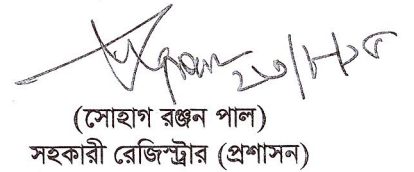 (সোহাগ রঞ্জন পাল)
সহকারী রেজিস্ট্রার (প্রশাসন)